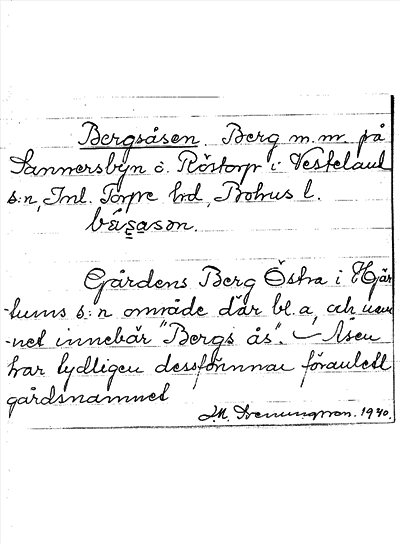 Bergsåsen. Berg m.m. på
Sannersbyn o. Röstorp i Vesteland
s:n, Inl. Torpe hrd, Bohus l.
Gårdens Berg Östra i Hjär-
tums s:n område där bl.a, och nam-
net innebär "Bergs ås". Åsen
har tydligen dessförinnan föranlett
gårdsnamnet
1940.